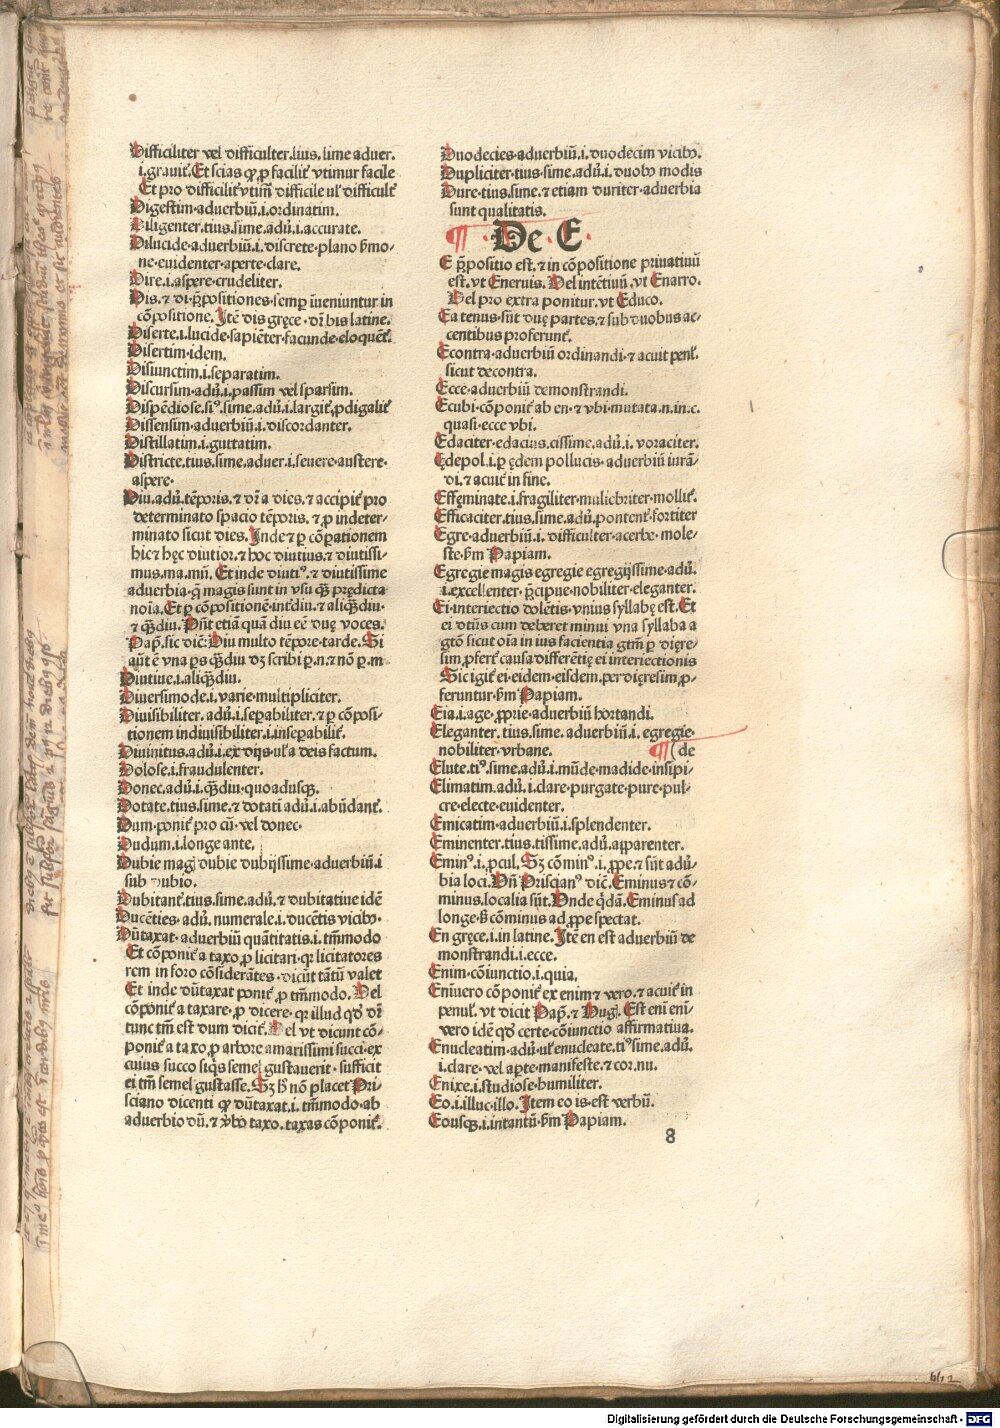 Difficiliter vel difficulter.lius.lime aduer.
i.grauit̄.Et scias ꝙ ꝓ facilit̄ vtimur facile
Et pro difficilit̄ vtim̄ difficile ul' difficult̄
Digestim.aduerbiū.i.ordinatim.
Diligenter.tius.sime.adū.i.accurate.
Dilucide.aduerbiū.i.discrete.plano ẞmo-
ne.euidenter.aperte.clare.
Dire.i.aspere.crudeliter.
Dis.⁊ di.p̄positiones.semꝑ īueniuntur in
cōpositione. Itē dis gręce.dr̄ bis latine.
Diserte.i.lucide.sapiēter.facunde.eloquēt̄.
Disertim.idem.
Disiunctim.i.separatim.
Discursim.adū.i.passim vel sparsim.
Dispēdiose.siꝰ.sime.adū.i.largit̄.ꝓdigalit̄
Dissensim.aduerbiū.i.discordanter.
Distillatim.i.guttatim.
Districte.tius.sime.aduer.i.seuere.austere.
aspere.
Diu.adū.tēporis.⁊ dr̄ a dies.⁊ accipit̄ pro
determinato spacio tēporis.⁊ ꝓ indeter-
minato sicut dies. Inde ⁊ ꝑ cōpationem
hic ⁊ hęc diutior.⁊ hoc diutius.⁊ diutissi-
mus.ma.mū. Et inde diutiꝰ.⁊ diutissime
aduerbia.q̄ magis sunt in vsu q̄ꝫ prędicta
noīa. Et ꝑ cōpositionē int̄diu.⁊ aliq̄ꝫdiu.
⁊ q̄ꝫdiu. Pn̄t etiā quā diu eē duę voces.
Pap̄.sic dic̄. Diu multo tēpore.tarde. Si
aūt ē vna ꝑs q̄ꝫdiu dꝫ scribi ꝑ.n.⁊ nō ꝑ.m
Diutiue.i.aliq̄ꝫdiu.
Diuersimode.i.varie.multipliciter.
Diuisibiliter.adū.i.seꝑabiliter.⁊ ꝑ cōposi-
tionem indiuisibiliter.i.inseꝑabilit̄.
Diuinitus.adū.i.ex dijs.ul'a deis factum.
Dolose.i.fraudulenter.
Donec.adū.i.q̄ꝫdiu.quoadusqꝫ.
Dotate.tius.sime.⁊ dotati adū.i.abūdant̄.
Dum.ponit̄ pro cū.vel donec.
Dudum.i.longe ante.
Dubie mag̣ dubie dubijssime.aduerbiū.i
sub dubio.
Dubitant̄.tius.sime.adū.⁊ dubitatiue idē
Ducēties.adū.numerale.i.ducētis vicibꝰ.
Dūtaxat.aduerbiū quātitatis.i.tm̄modo
Et cōponit̄ a taxo.ꝓ licitari.qꝛ licitatores
rem in foro cōsiderātes.dicūt tātū valet
Et inde dūtaxat ponit̄ ꝓ tm̄modo. Vel
cōponit̄ a taxare.ꝓ dicere.qꝛ illud qd̄ dr̄
tunc tm̄ est dum dicit̄. Vel vt dicunt cō-
ponit̄ a taxo ꝓ arbore amarissimi succi.ex
cuius succo siq̄s semel gustauerit.sufficit
ei tm̄ semel gustasse. Sꝫ h̄ nō placet Pri-
sciano dicenti ꝙ dūtaxat.i.tm̄modo.ab
aduerbio dū.⁊ v̄bo taxo.taxas cōponit̄.
Duodecies.aduerbiū.i.duodecim vicibꝰ.
Dupliciter.tius.sime.adū.i.duobꝰ modis
Dure.tius.sime.⁊ etiam duriter.aduerbia
sunt qualitatis.
¶ De E.
E p̄positio est.⁊ in cōpositione priuatiuū
est.vt Eneruis. Vel intētiuū.vt Enarro.
Vel pro extra ponitur.vt Educo.
Ea tenus.sūt duę partes.⁊ sub duobus ac-
centibus proferunt̄.
Econtra.aduerbiū ordinandi.⁊ acuit penl̄.
sicut decontra.
Ecce.aduerbiū demonstrandi.
Ecubi.cōponit̄ ab en.⁊ vbi.mutata.n.in.c.
quasi.ecce vbi.
Edaciter.edacius.cissime.adū.i.voraciter.
Ędepol.i.ꝑ ędem pollucis.aduerbiū iurā-
di.⁊ acuit̄ in fine.
Effęminate.i.fragiliter.muliebriter.mollit̄.
Efficaciter.tius.sime.adū.potent̄.fortiter
Egre.aduerbiū.i.difficulter.acerbe.mole-
ste.ẞm Papiam.
Egregie magis egregie egregijssime.adū.
i.excellenter.p̄cipue.nobiliter.eleganter.
Ei.interiectio dolētis.vnius syllabę est. Et
ei dtiūs cum deberet minui vna syllaba a
gtō sicut oīa in ius facientia gtm̄ ꝑ dięre-
sim ꝓfert̄ causa differētię ei interiectionis
Sic igit̄ ei eidem.eisdem.per dięresim ꝓ-
feruntur.ẞm Papiam.
Eia.i.age.ꝓprie.aduerbiū hortandi.
Eleganter.tius.sime.aduerbiū.i.egregie.
nobiliter.vrbane. ¶(de
Elute.tiꝰ.sime.adū.i.mūde.madide.insipi-
Elimatim.adū.i.clare.purgate.pure.pul-
cre.electe.euidenter.
Emicatim.aduerbiū.i.splendenter.
Eminenter.tius.tissime.adū.apparenter.
Eminꝰ.i.ꝓcul. Sꝫ cōminꝰ.i.ꝓpe.⁊ sūt adū-
bia loci. Vn̄ Priscianꝰ dic̄. Eminus ⁊ cō-
minus.localia sūt. Vnde q̄dā. Eminus ad
longe.ẞ cōminus ad ꝓpe spectat.
En gręce.i.in latine. Itē en est aduerbiū de
monstrandi.i.ecce.
Enim.cōiunctio.i.quia.
Enīuero cōponit̄ ex enim ⁊ vero.⁊ acuit̄ in
penul̄.vt dicit Pap̄.⁊ Hug̣. Est enī enī-
vero idē qd̄ certe.cōiunctio affirmatiua.
Enucleatim.adū.ul' enucleate.tiꝰ sime.adū.
i.clare.vel aꝑte.manifeste.⁊ cor.nu.
Enixe.i.studiose.humiliter.
Eo.i.illuc.illo. Item eo is.est verbū.
Eousqꝫ.i.intantū.ẞm Papiam.
8
Digitalisierung gefördert durch die Deutsche Forschungsgemeinschaft - DFG